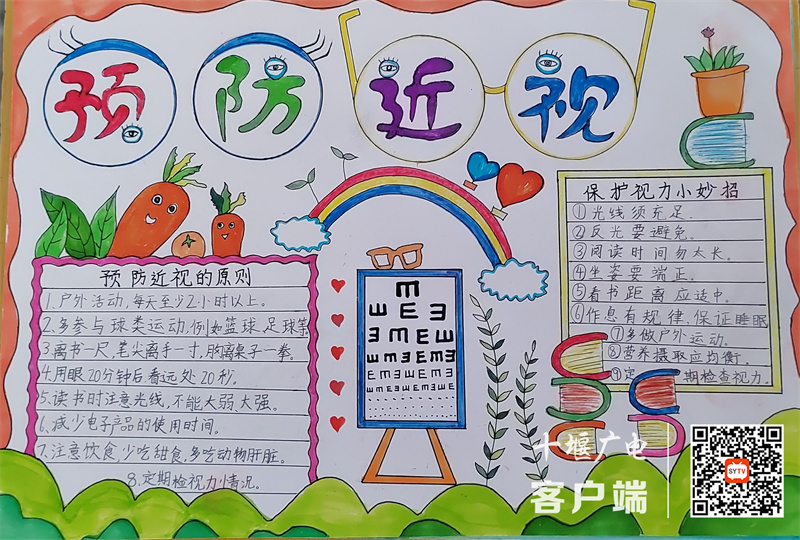 预防近视
预防近视的原则
1.户外活动,每天至少2小时以上。
2.多参与球类运动,例如篮球、足球等
3.离书一尺,笔尖离手一寸,胸离桌子一拳。
4.用眼20分钟后看远处20秒。
5.读书时注意光线,不能太弱、太强。
6.减少电子产品的使用时间。
7.注意饮食,少吃甜食,多吃动物肝脏。
8.定期检视力情况。
保护视力小妙招
①光线须充足.
②反光要避免.
③阅读时间勿太长.
④坐姿要端正.
⑤看书距离应适中.
⑥作息有规律,保证睡眠
⑦多做户外运动.
⑧营养摄取应均衡.
⑨定期检查视力.
十堰广电
客户端
SYTV